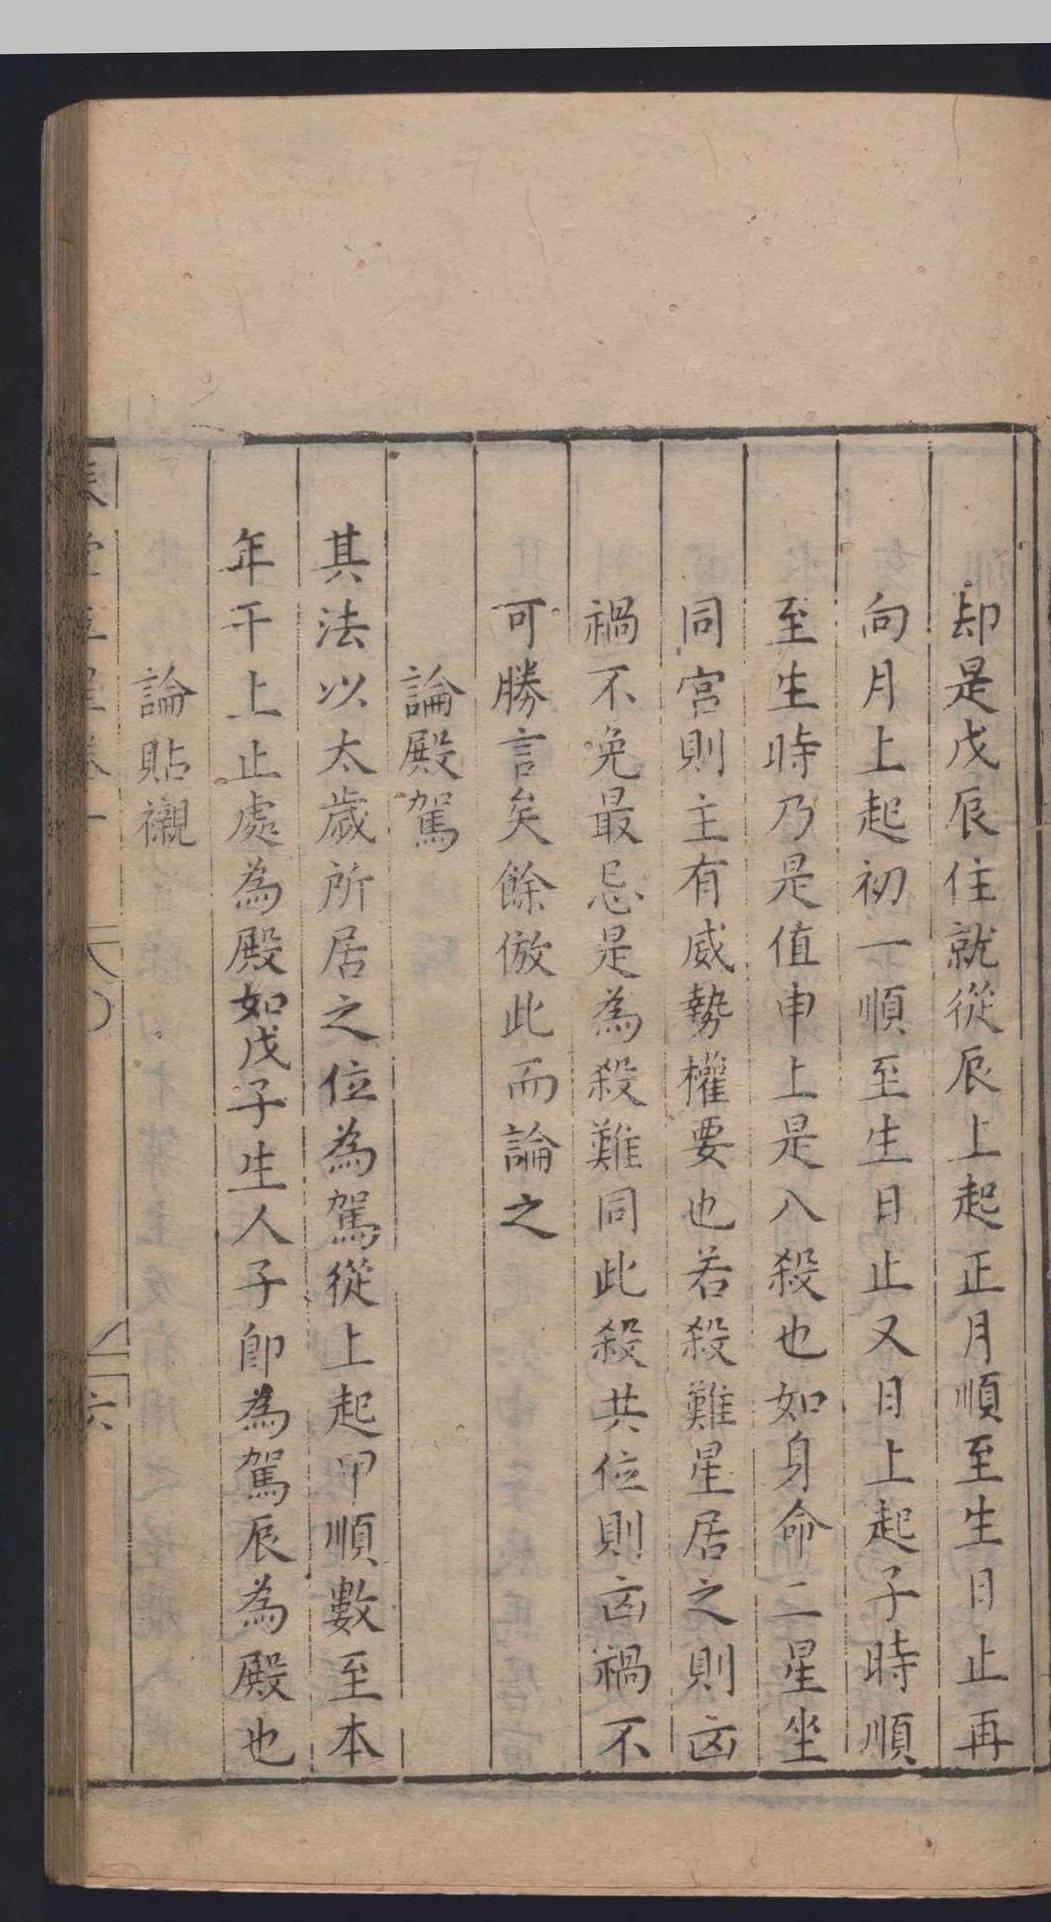 却是戊辰住就從辰上起正月順至生日止再
向月上起初一順至生日止又日上起子時順
至生時乃是值申上是八殺也如身命二星坐
同宮則主有威勢權要也若殺難星居之則凶
禍不免最忌是為殺難同此殺共位則凶禍不
可勝言矣餘倣此而論之
論殿駕
其法以太歲所居之位為駕從上起甲順數至本
年干上止處為殿如戊子生人子卽為駕辰為殿也
論貼襯
六